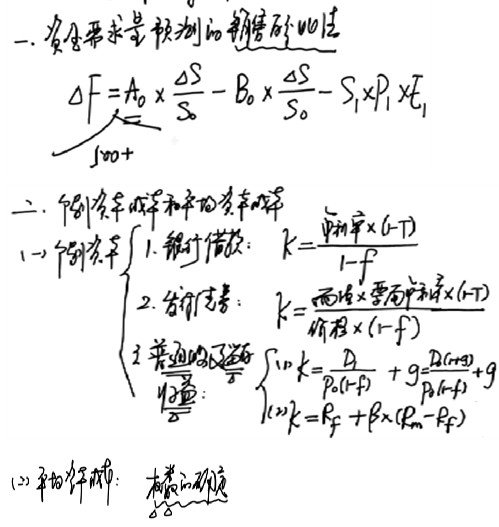 一.资金需求量预测的销售百分比法
ΔF=A₀×ΔS/S₀-B₀×ΔS/S₀-S₁×P₁×E₁
二.个别资本成本和平均资本成本
(一)个别资本
1.银行借款: K=年利率×(1-T)/1-f
2.发行债券: K=面值×票面年利率×(1-T)/价格×(1-f)
3.普通股
(1)K=D₁/P₀(1-f)+g=D₀(1+g)/P₀(1-f)+g
(2)K=Rf+β×(Rm-Rf)
(二)平均资本成本: 权数的确定